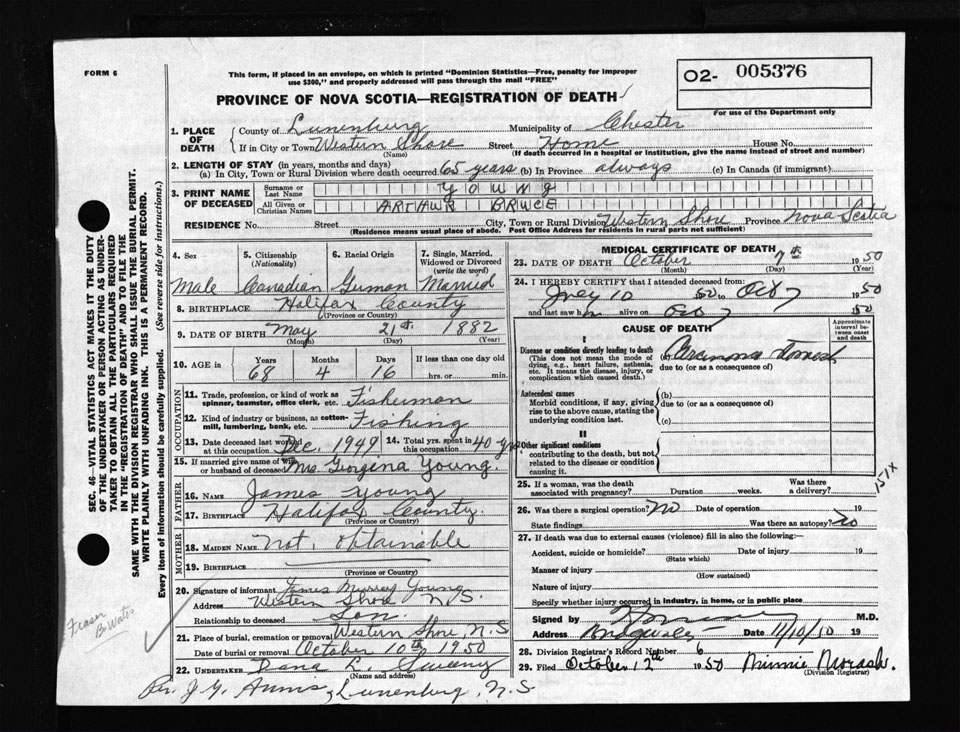 FORM 6
This form, if placed in an envelope, on which is printed "Dominion Statistics—Free, penalty for improper
use $300," and properly addressed will pass through the mail "FREE"
PROVINCE OF NOVA SCOTIA—REGISTRATION OF DEATH
02- 005376
For use of the Department only
1. PLACE OF DEATH County of Lunenburg Municipality of Chester
If in City or Town Western Shore Street Home House No.
(Name) (If death occurred in a hospital or institution, give the name instead of street and number)
2. LENGTH OF STAY (in years, months and days)
(a) In City, Town or Rural Division where death occurred 65 years (b) In Province always (c) In Canada (if immigrant)
3. PRINT NAME OF DECEASED Surname or Last Name YOUNG
All Given or Christian Names ARTHUR BRUCE
RESIDENCE No. Street City, Town or Rural Division Western Shore Province Nova Scotia
(Residence means usual place of abode. Post Office Address for residents in rural parts not sufficient)
4. Sex 5. Citizenship (Nationality) 6. Racial Origin 7. Single, Married, Widowed or Divorced (write the word)
Male Canadian German Married
8. BIRTHPLACE Halifax County
(Province or Country)
9. DATE OF BIRTH May 21st 1882
(Month) (Day) (Year)
10. AGE in Years Months Days If less than one day old
68 4 16 hrs. or min.
OCCUPATION
11. Trade, profession, or kind of work as spinner, teamster, office clerk, etc. Fisherman
12. Kind of industry or business, as cotton-mill, lumbering, bank, etc. Fishing
13. Date deceased last worked at this occupation Dec. 1949 14. Total yrs. spent in this occupation 40 yrs
15. If married give name of wife or husband of deceased Mrs Georgena Young.
FATHER
16. NAME James Young
17. BIRTHPLACE Halifax County.
(Province or Country)
MOTHER
18. MAIDEN NAME Not. Obtainable
19. BIRTHPLACE
(Province or Country)
20. Signature of informant James Murray Young
Address Western Shore N.S.
Relationship to deceased Son
21. Place of burial, cremation or removal Western Shore, N.S
Date of burial or removal October 10th 1950
22. UNDERTAKER Dana L. Sweeny
(Name and address)
Per. J. G. Annis, Lunenburg, N.S
MEDICAL CERTIFICATE OF DEATH
23. DATE OF DEATH October 7th 1950
(Month) (Day) (Year)
24. I HEREBY CERTIFY that I attended deceased from
July 10 50 to Oct 7 1950
and last saw him alive on Oct 7 50
CAUSE OF DEATH
Approximate interval between onset and death
I
Disease or condition directly leading to death (a) Carcinoma Stomach
(This does not mean the mode of dying, e.g., heart failure, asthenia, etc. It means the disease, injury, or complication which caused death.)
due to (or as a consequence of)
Antecedent causes (b)
Morbid conditions, if any, giving rise to the above cause, stating the underlying condition last.
due to (or as a consequence of)
(c)
II
Other significant conditions
contributing to the death, but not related to the disease or condition causing it.
151X
25. If a woman, was the death associated with pregnancy? Duration weeks. Was there a delivery?
26. Was there a surgical operation? No Date of operation 19
State findings Was there an autopsy? No
27. If death was due to external causes (violence) fill in also the following:—
Accident, suicide or homicide? Date of injury 19
(State which)
Manner of injury
(How sustained)
Nature of injury
Specify whether injury occurred in industry, in home, or in public place
Signed by M.D.
Address Bridgewater Date 11/10/50 19
28. Division Registrar's Record Number 6
29. Filed October 12th 1950 Minnie Morash.
(Division Registrar)
SEC. 46—VITAL STATISTICS ACT MAKES IT THE DUTY
OF THE UNDERTAKER OR PERSON ACTING AS UNDER-
TAKER TO OBTAIN ALL THE PARTICULARS REQUIRED
IN THE "REGISTRATION OF DEATH" AND TO FILE THE
SAME WITH THE DIVISION REGISTRAR WHO SHALL ISSUE THE BURIAL PERMIT.
WRITE PLAINLY WITH UNFADING INK. THIS IS A PERMANENT RECORD.
Every item of information should be carefully supplied. (See reverse side for instructions.)
Fraser